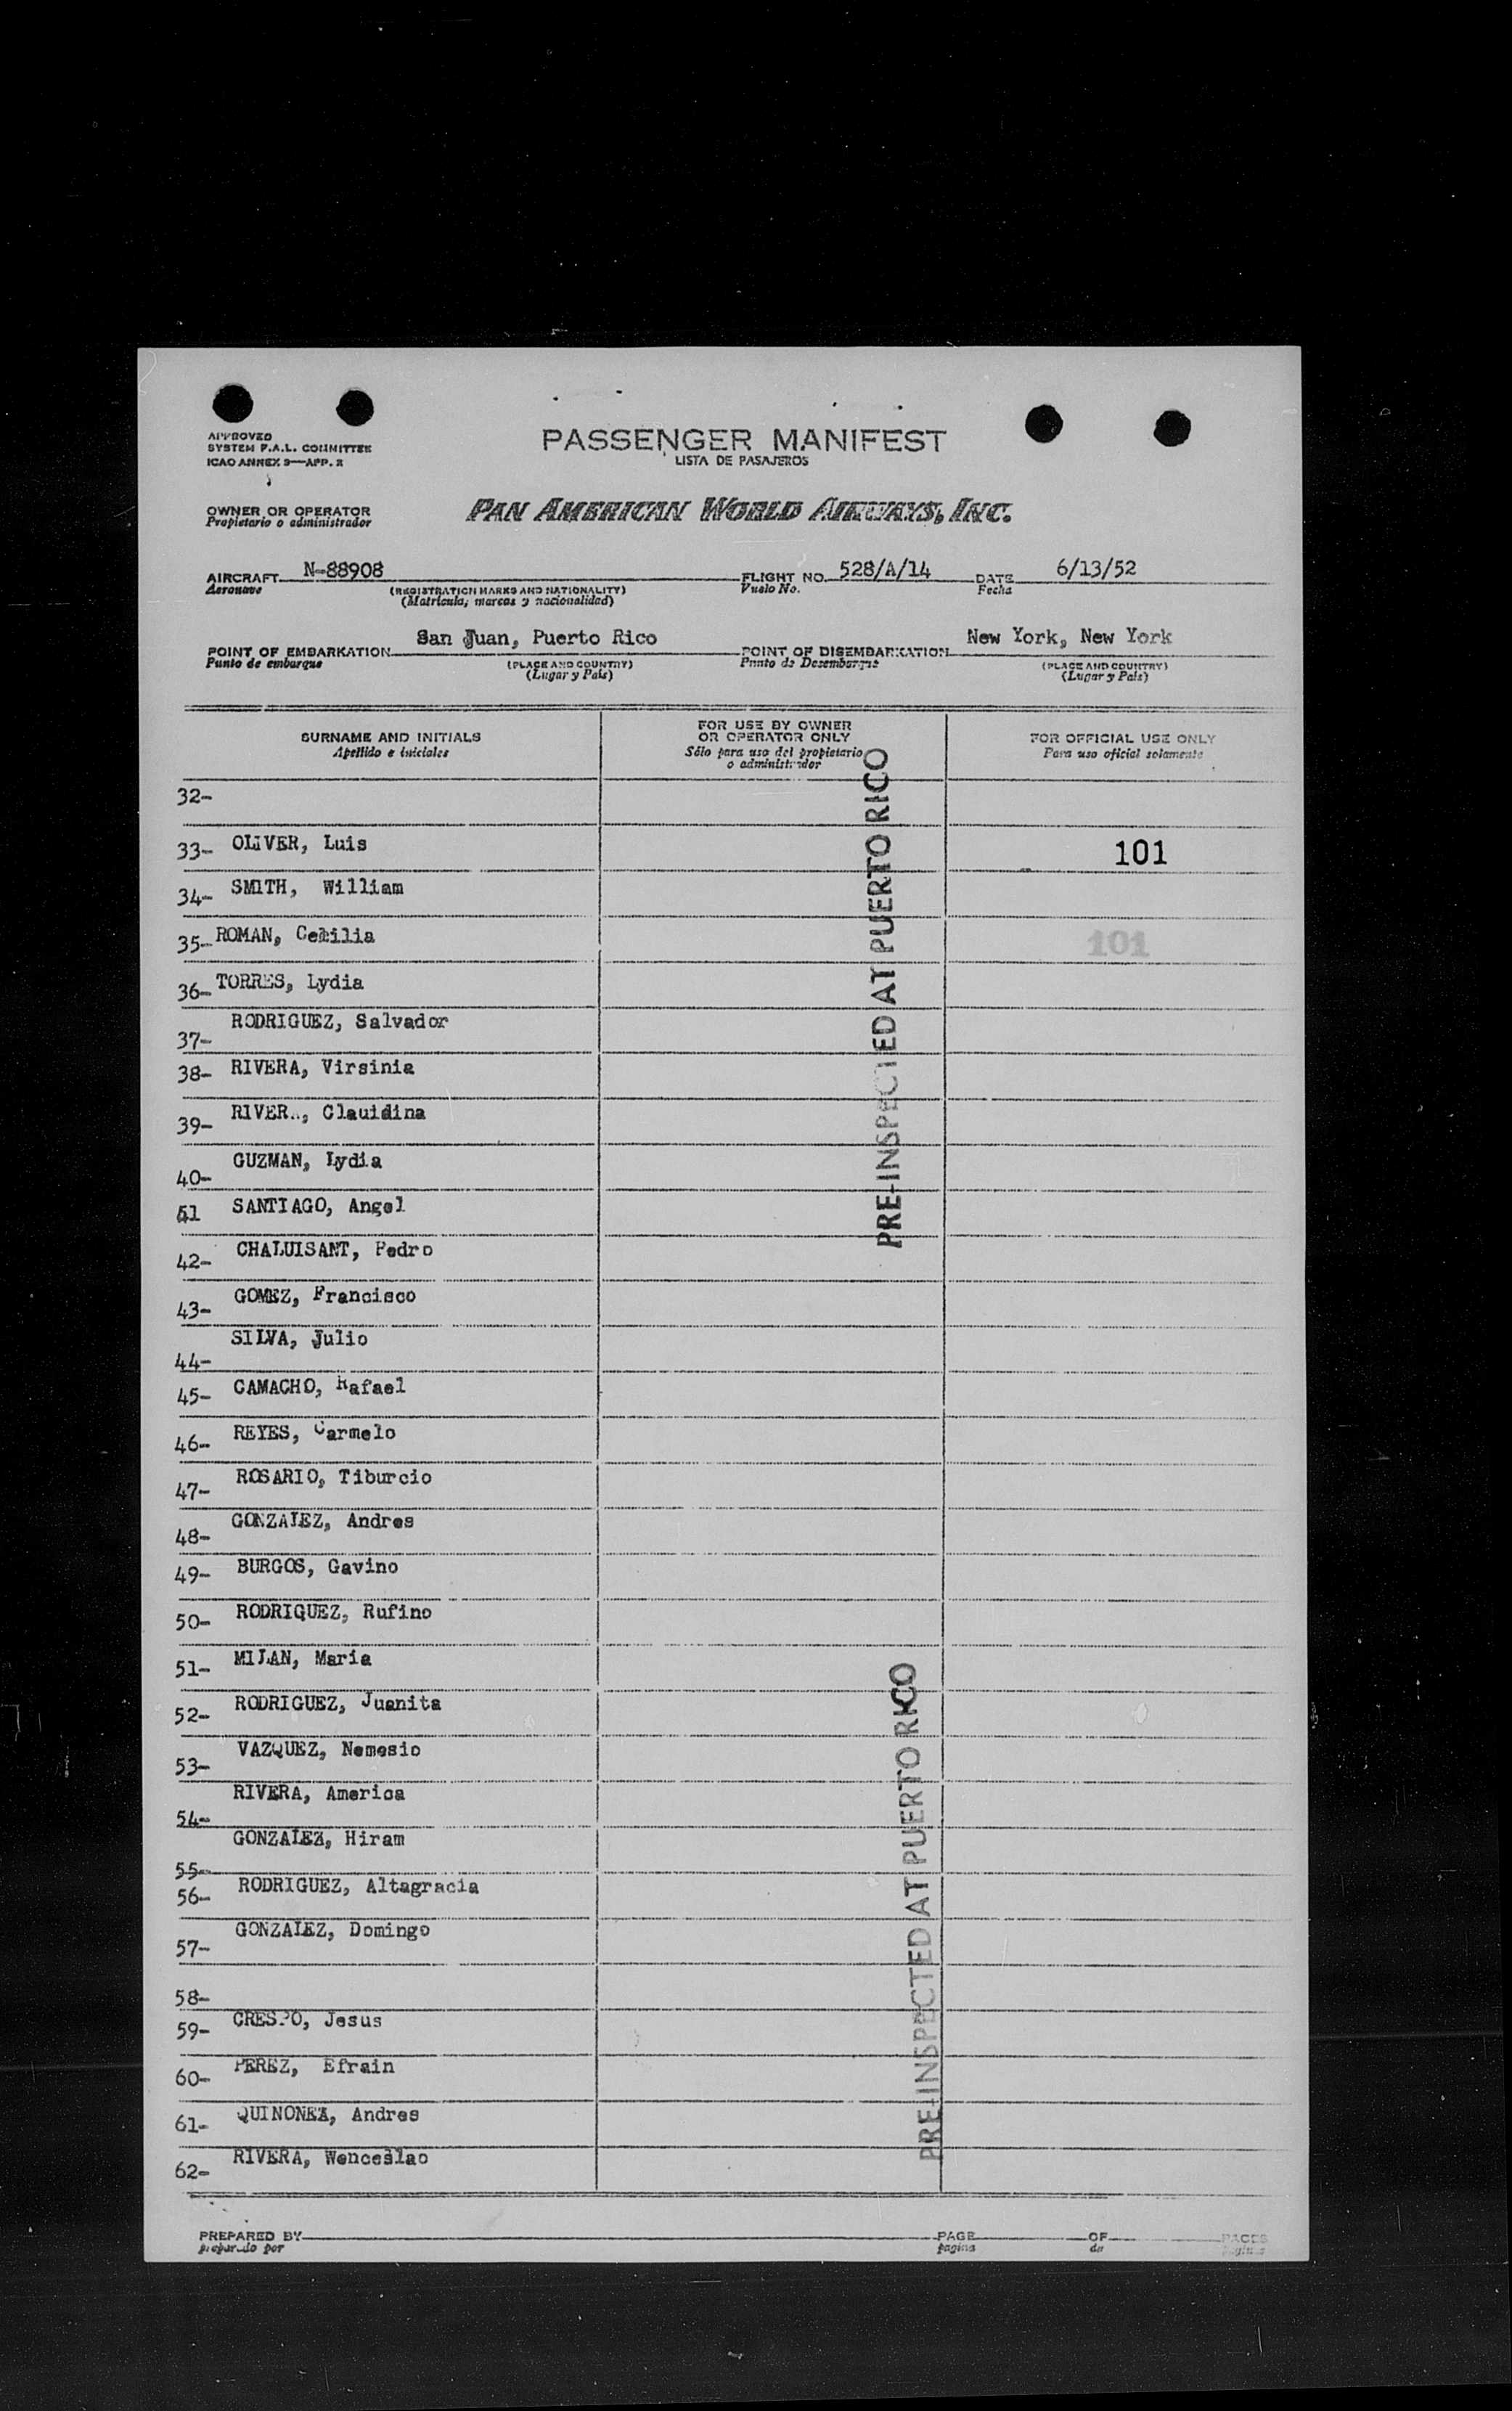 APPROVED
SYSTEM F.A.L. COMMITTEE
ICAO ANNEX 9—APP. 2
PASSENGER MANIFEST
LISTA DE PASAJEROS
OWNER OR OPERATOR
Propietario o administrador
PAN AMERICAN WORLD AIRWAYS, INC.
AIRCRAFT N-88908 FLIGHT NO. 528/A/14 DATE 6/13/52
Aeronave (REGISTRATION MARKS AND NATIONALITY) Vuelo No. Fecha
(Matricula, marcas y nacionalidad)
POINT OF EMBARKATION San Juan, Puerto Rico POINT OF DISEMBARKATION New York, New York
Punto de embarque (PLACE AND COUNTRY) Punto de Desembarque (PLACE AND COUNTRY)
(Lugar y País) (Lugar y País)
SURNAME AND INITIALS
Apellido e iniciales
FOR USE BY OWNER
OR OPERATOR ONLY
Sólo para uso del propietario
o administrador
FOR OFFICIAL USE ONLY
Para uso oficial solamente
32-
33- OLIVER, Luis 101
34- SMITH, William
35- ROMAN, Cecilia 101
36- TORRES, Lydia
37- RODRIGUEZ, Salvador
38- RIVERA, Virsinia
39- RIVERA, Clauidina
40- GUZMAN, Lydia
41 SANTIAGO, Angel
42- CHALUISANT, Pedro
43- GOMEZ, Francisco
44- SILVA, Julio
45- CAMACHO, Rafael
46- REYES, Carmelo
47- ROSARIO, Tiburcio
48- GONZALEZ, Andres
49- BURGOS, Gavino
50- RODRIQUEZ, Rufino
51- MILAN, Maria
52- RODRIGUEZ, Juanita
53- VAZQUEZ, Nemesio
54- RIVERA, America
55- GONZALEZ, Hiram
56- RODRIGUEZ, Altagracia
57- GONZALEZ, Domingo
58-
59- CRESPO, Jesus
60- PEREZ, Efrain
61- QUINONEZ, Andres
62- RIVERA, Wenceslao
PRE-INSPECTED AT PUERTO RICO
PRE-INSPECTED AT PUERTO RICO
PREPARED BY PAGE OF PAGES
preparado por pagina de paginas